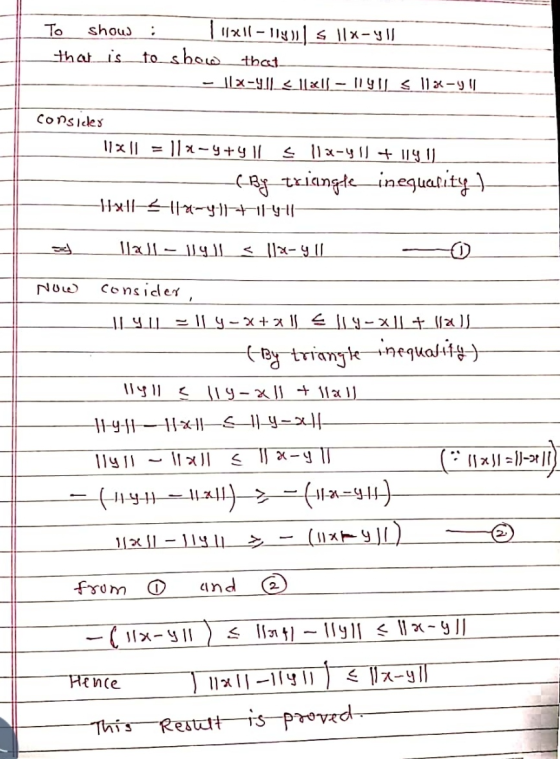 To show : | ||x|| - ||y|| | ≤ ||x-y||
that is to show that
- ||x-y|| ≤ ||x|| - ||y|| ≤ ||x-y||
Consider
||x|| = ||x-y+y|| ≤ ||x-y|| + ||y||
(By triangle inequality)
||x|| ≤ ||x-y|| + ||y||
⇒ ||x|| - ||y|| ≤ ||x-y|| —— ①
Now consider,
||y|| = ||y-x+x|| ≤ ||y-x|| + ||x||
(By triangle inequality)
||y|| ≤ ||y-x|| + ||x||
||y|| - ||x|| ≤ ||y-x||
||y|| - ||x|| ≤ ||x-y|| (∵ ||x|| = ||-x||)
- (||y|| - ||x||) ≥ - (||x-y||)
||x|| - ||y|| ≥ - (||x-y||) —— ②
from ① and ②
- (||x-y||) ≤ ||x|| - ||y|| ≤ ||x-y||
Hence | ||x|| - ||y|| | ≤ ||x-y||
This Result is proved.